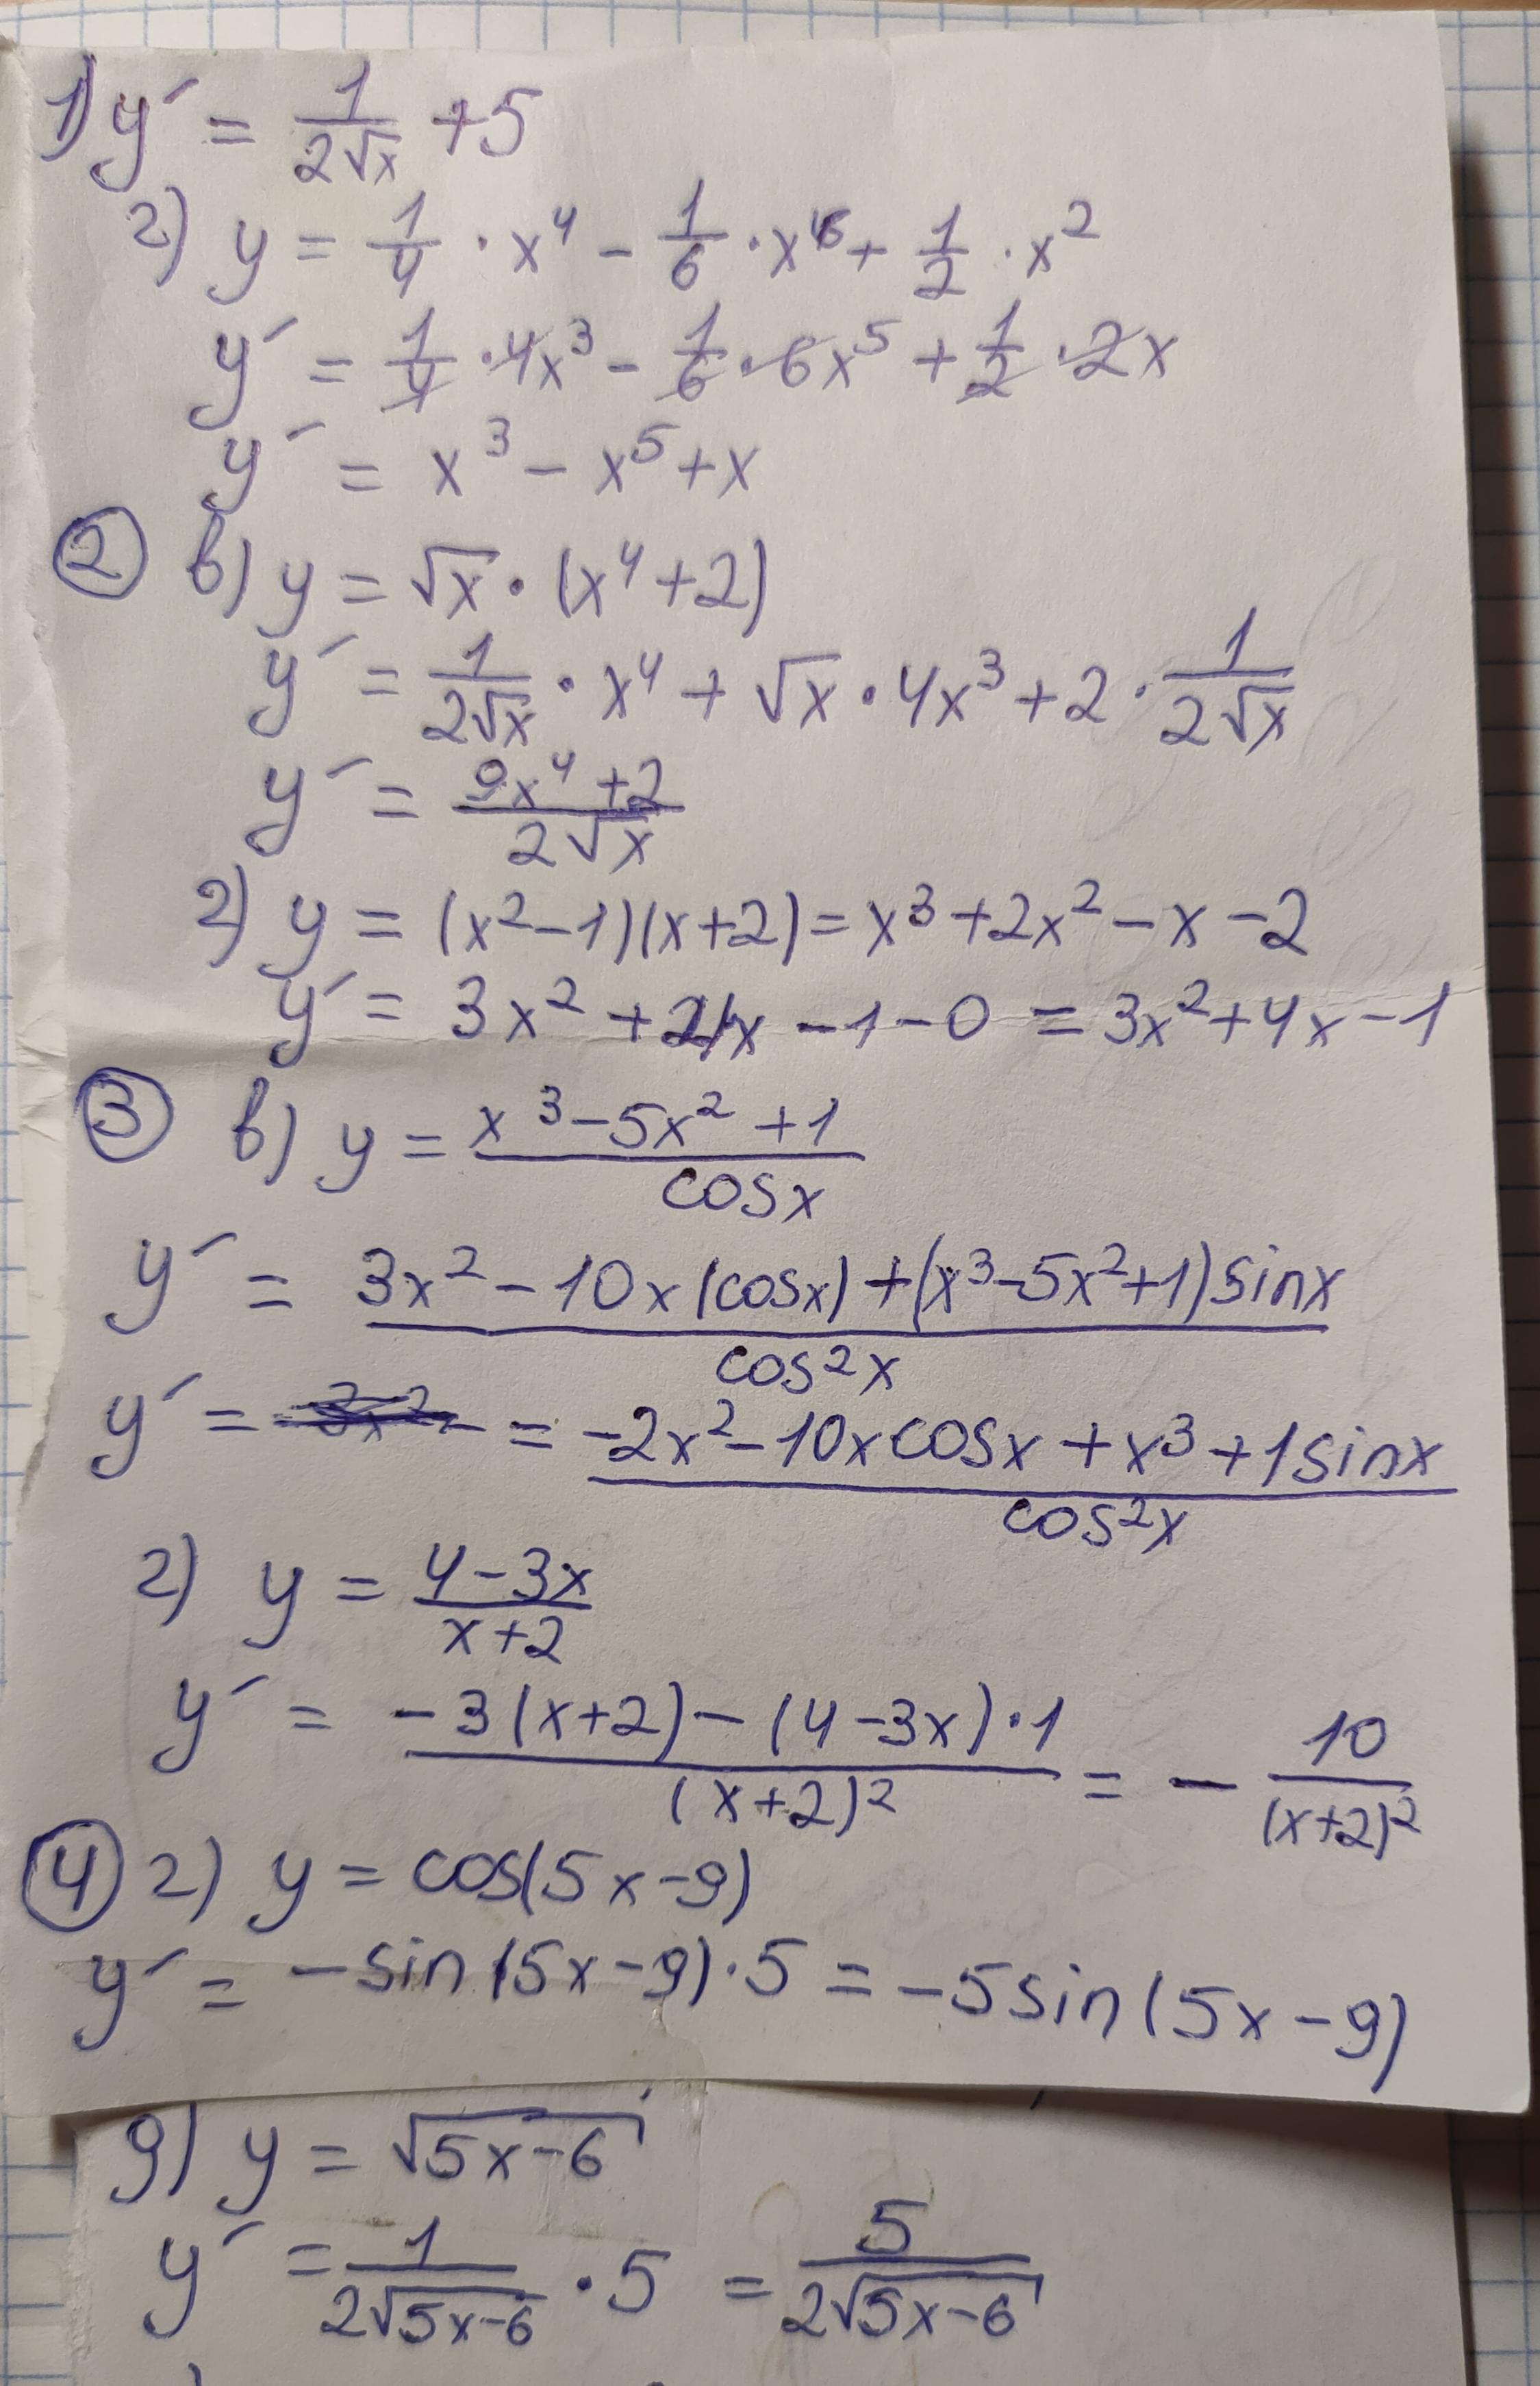 1) y′ = 1/(2√x) + 5
г) y = 1/4 · x⁴ − 1/6 · x⁶ + 1/2 · x²
y′ = 1/4 · 4x³ − 1/6 · 6x⁵ + 1/2 · 2x
y′ = x³ − x⁵ + x
② в) y = √x · (x⁴ + 2)
y′ = 1/(2√x) · x⁴ + √x · 4x³ + 2 · 1/(2√x)
y′ = (9x⁴ + 2)/(2√x)
г) y = (x² − 1)(x + 2) = x³ + 2x² − x − 2
y′ = 3x² + 4x − 1 − 0 = 3x² + 4x − 1
③ в) y = (x³ − 5x² + 1)/(cosx)
y′ = (3x² − 10x(cosx) + (x³ − 5x² + 1)sinx)/(cos²x)
y′ = = (−2x² − 10xcosx + x³ + 1sinx)/(cos²x)
г) y = (4 − 3x)/(x + 2)
y′ = (−3(x + 2) − (4 − 3x) · 1)/((x + 2)²) = − 10/((x + 2)²)
④ г) y = cos(5x − 9)
y′ = −sin(5x − 9) · 5 = −5sin(5x − 9)
g) y = √(5x − 6)
y′ = 1/(2√(5x − 6)) · 5 = 5/(2√(5x − 6))